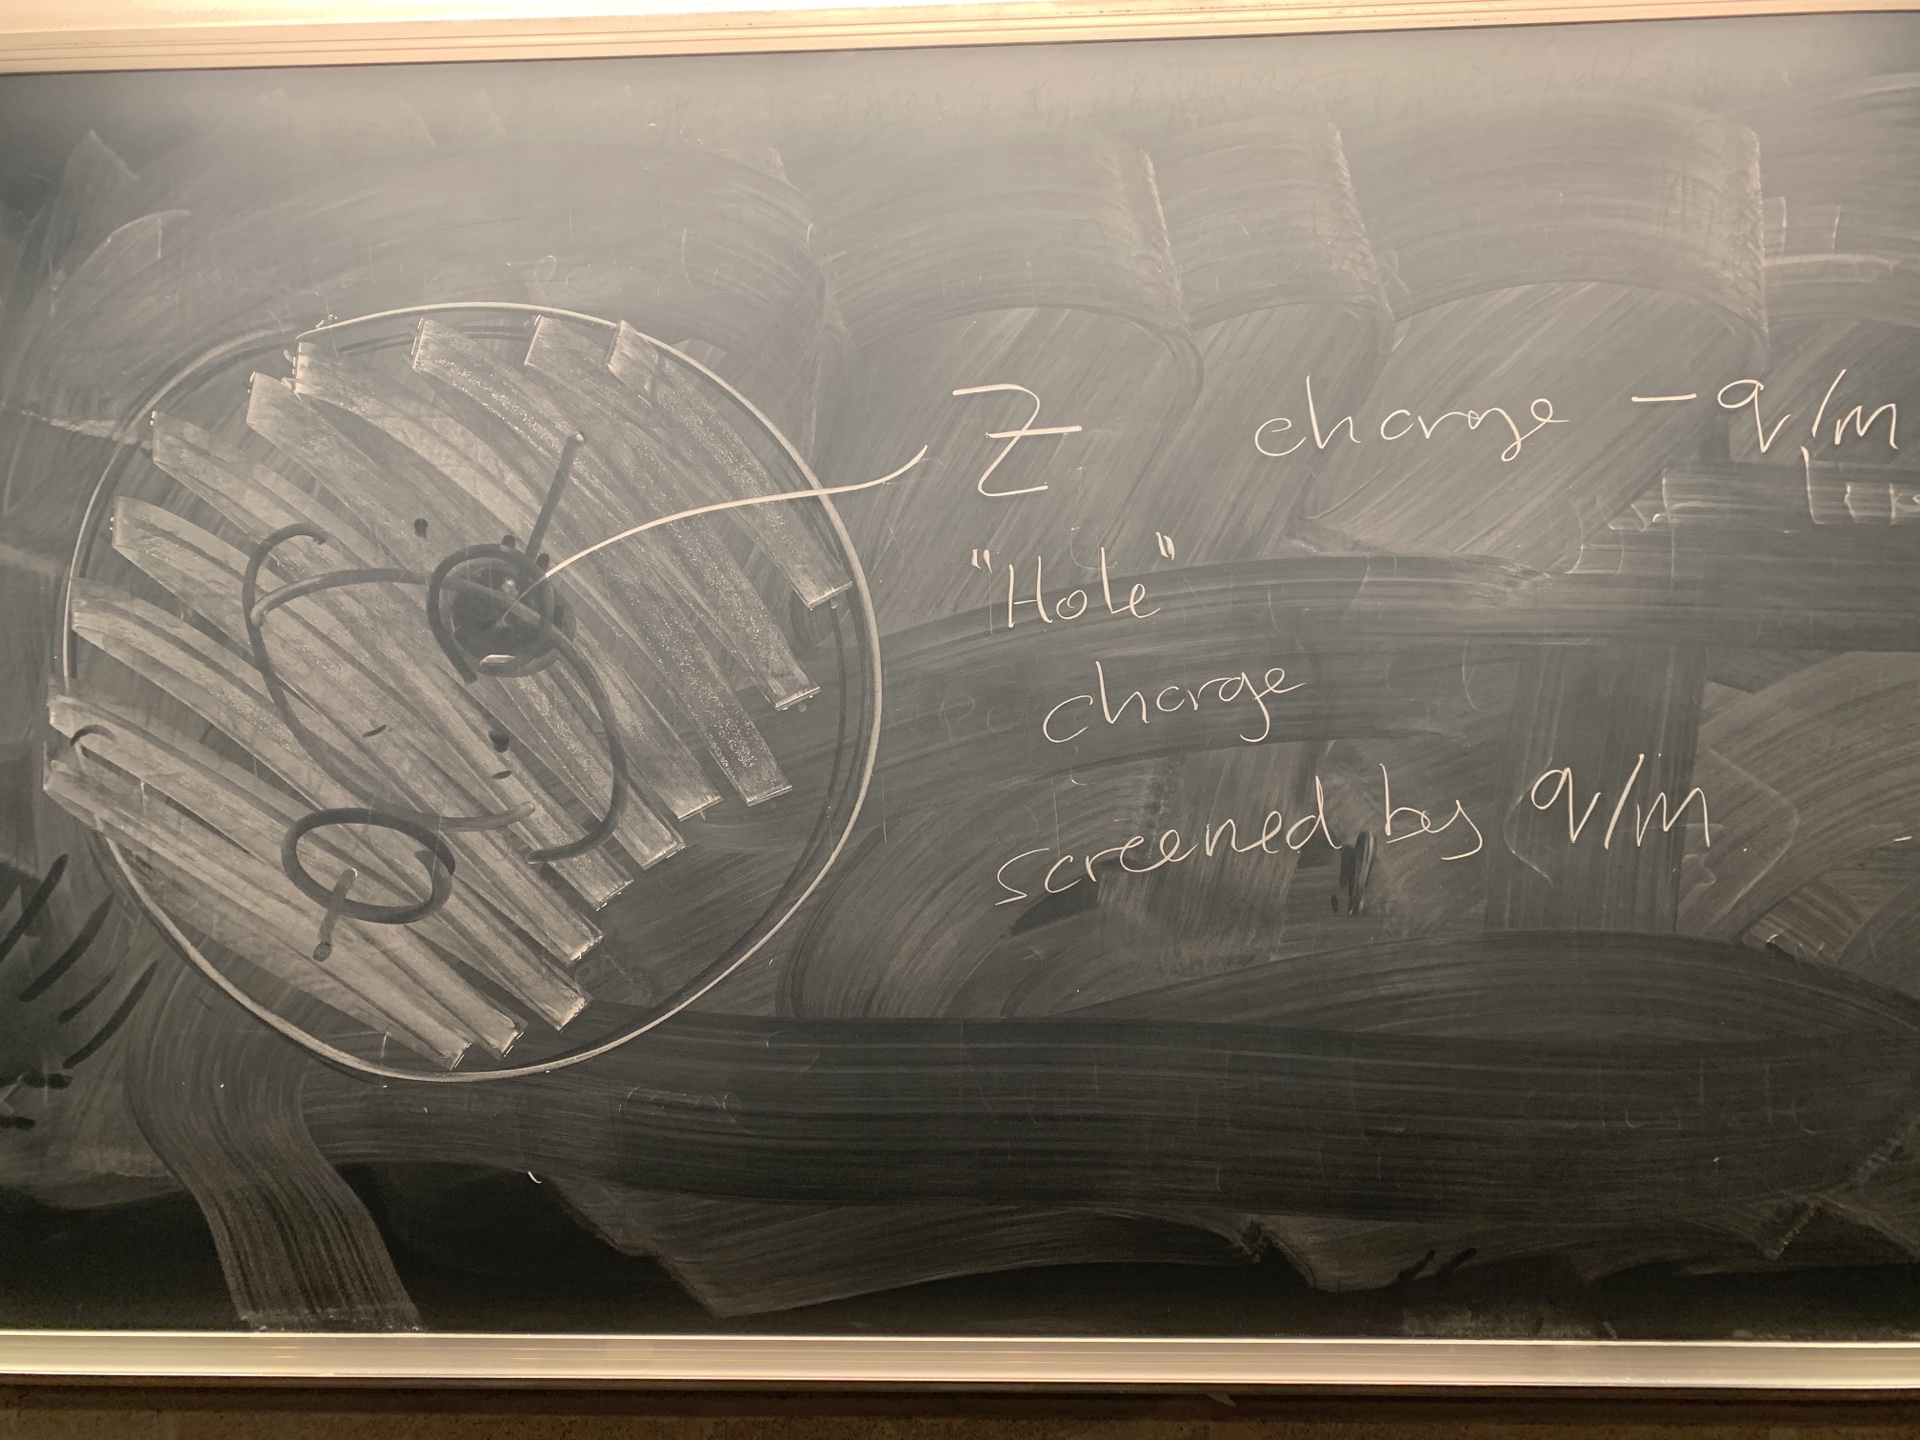 Z charge - q/m
"Hole"
charge
screened by q/m